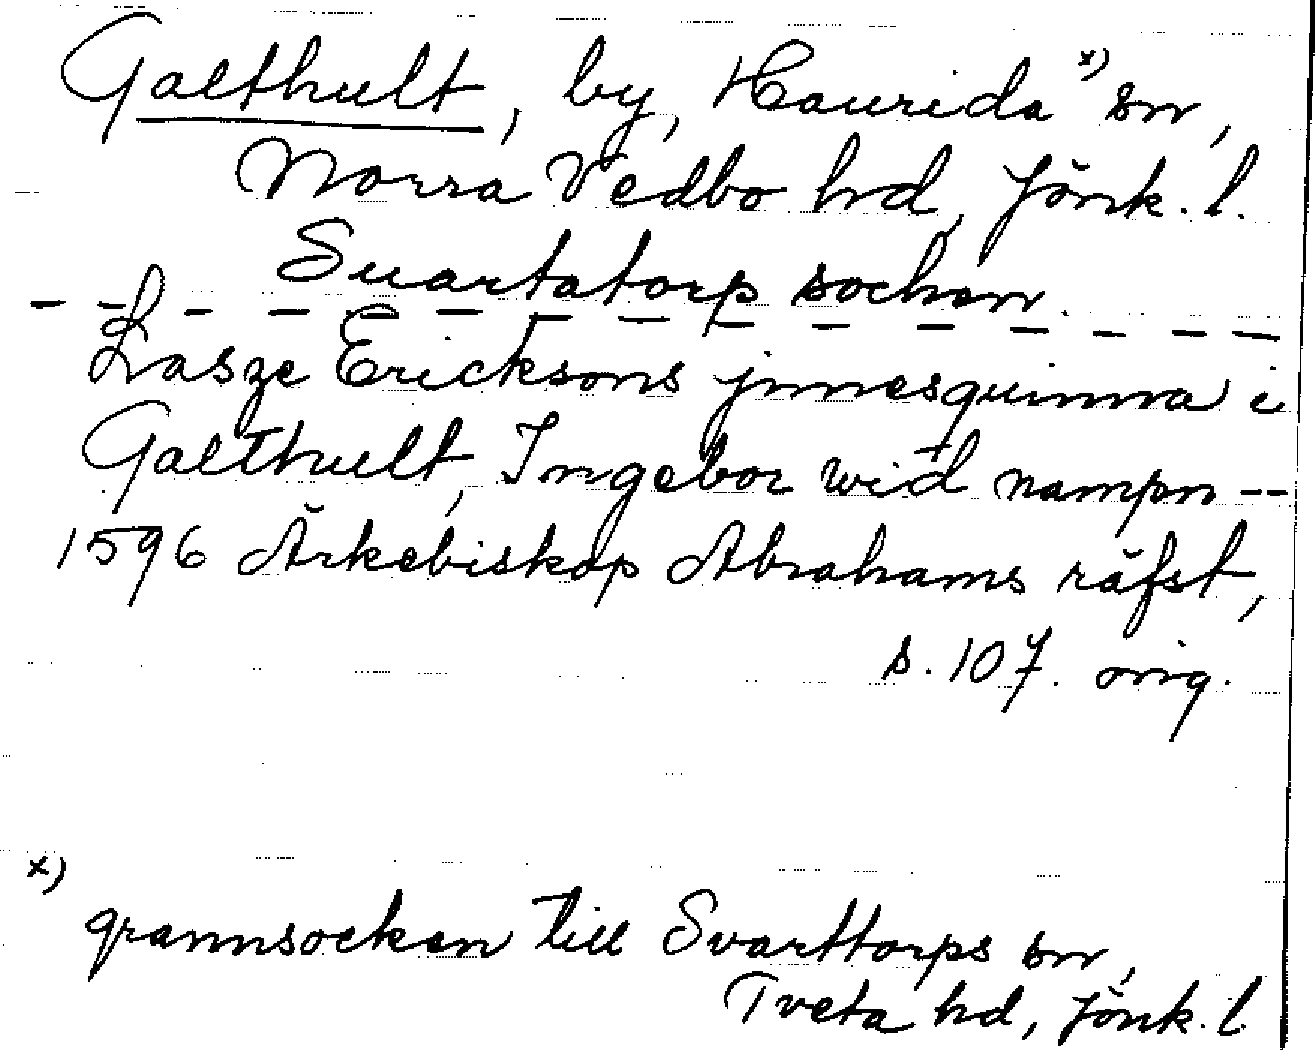 Galthult, by, Haurida x) sn,
Norra Vedbo hrd, Jönk. l.
Suartatorp sochen.
Lasze Ericksons jnnesquinna i
Galthult, Ingebor wid nampn --
1596 Ärkebiskop Abrahams räfst,
s. 107. orig.
x)
grannsocken till Svarttorps sn,
Tveta hd, Jönk. l.